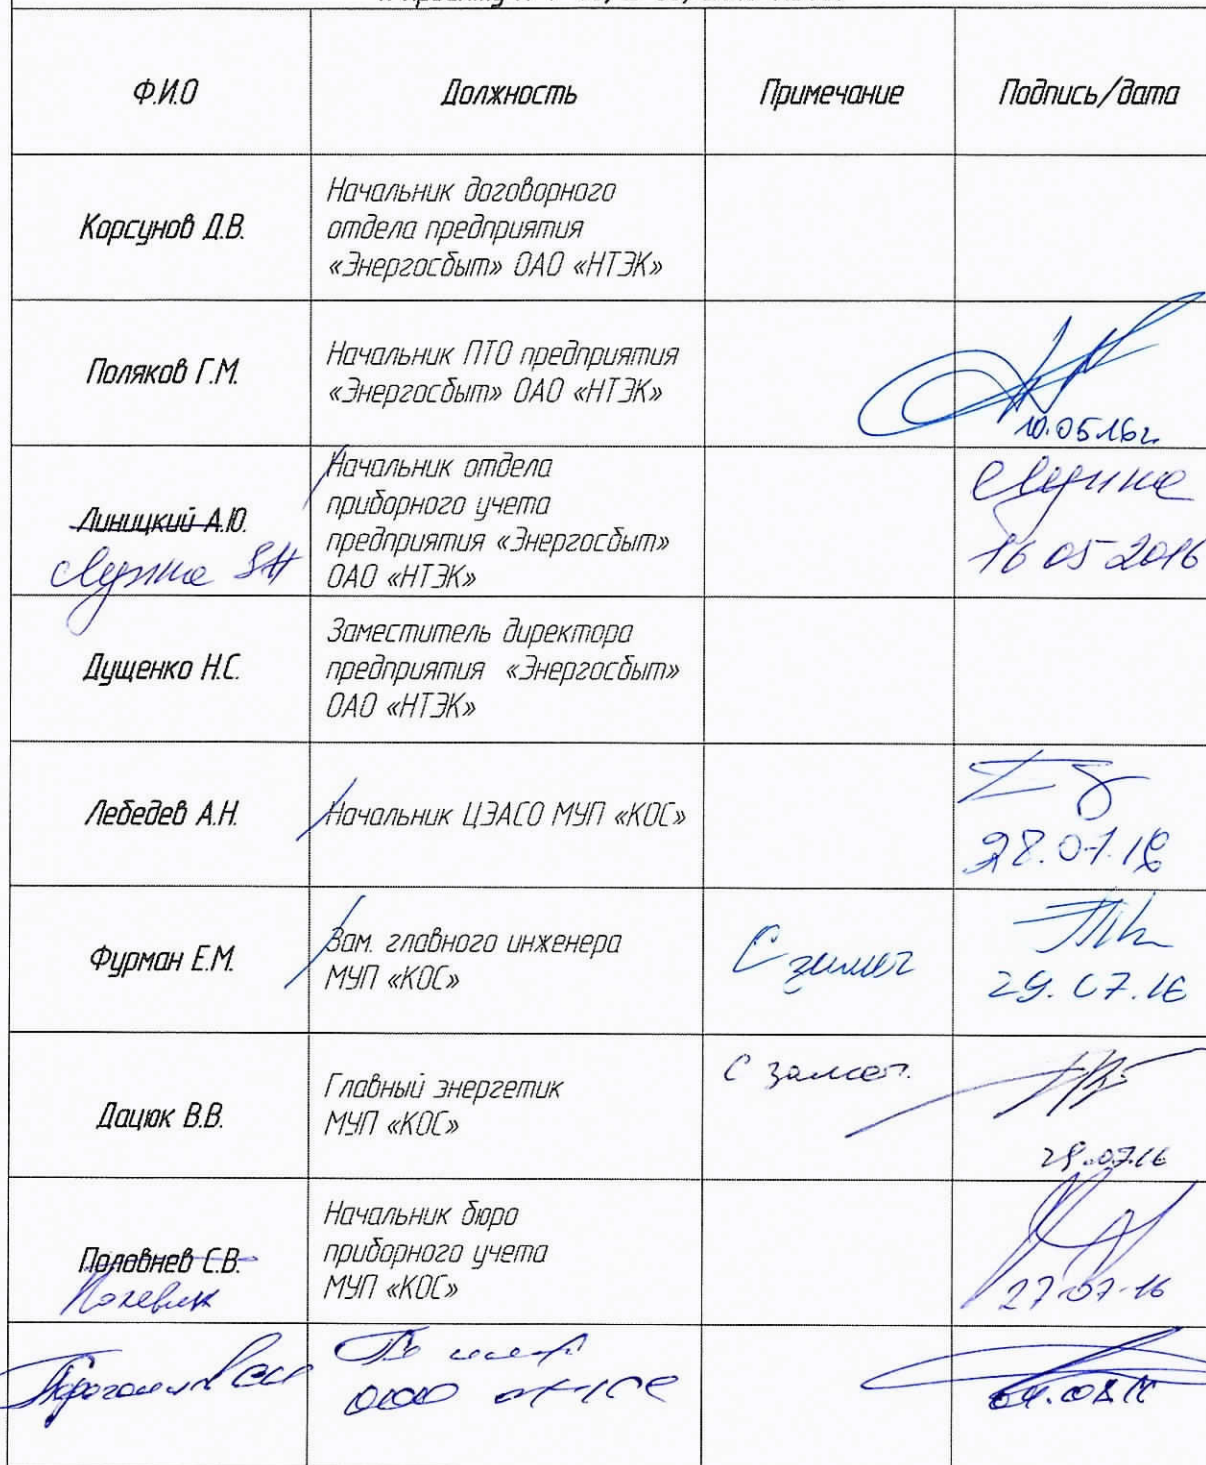 Ф.И.О
Должность
Примечание
Подпись/дата
Корсунов Д.В.
Начальник договорного
отдела предприятия
«Энергосбыт» ОАО «НТЭК»
Поляков Г.М.
Начальник ПТО предприятия
«Энергосбыт» ОАО «НТЭК»
10.05.16г.
Линицкий А.Ю.
Начальник отдела
приборного учета
предприятия «Энергосбыт»
ОАО «НТЭК»
16 05 2016
Дущенко Н.С.
Заместитель директора
предприятия «Энергосбыт»
ОАО «НТЭК»
Лебедев А.Н.
Начальник ЦЭАСО МУП «КОС»
Фурман Е.М.
Зам. главного инженера
МУП «КОС»
С замеч
29.07.16
Дацюк В.В.
Главный энергетик
МУП «КОС»
С замеч.
29.07.16
Половнев С.В.
Начальник бюро
приборного учета
МУП «КОС»
27-07-16
ООО